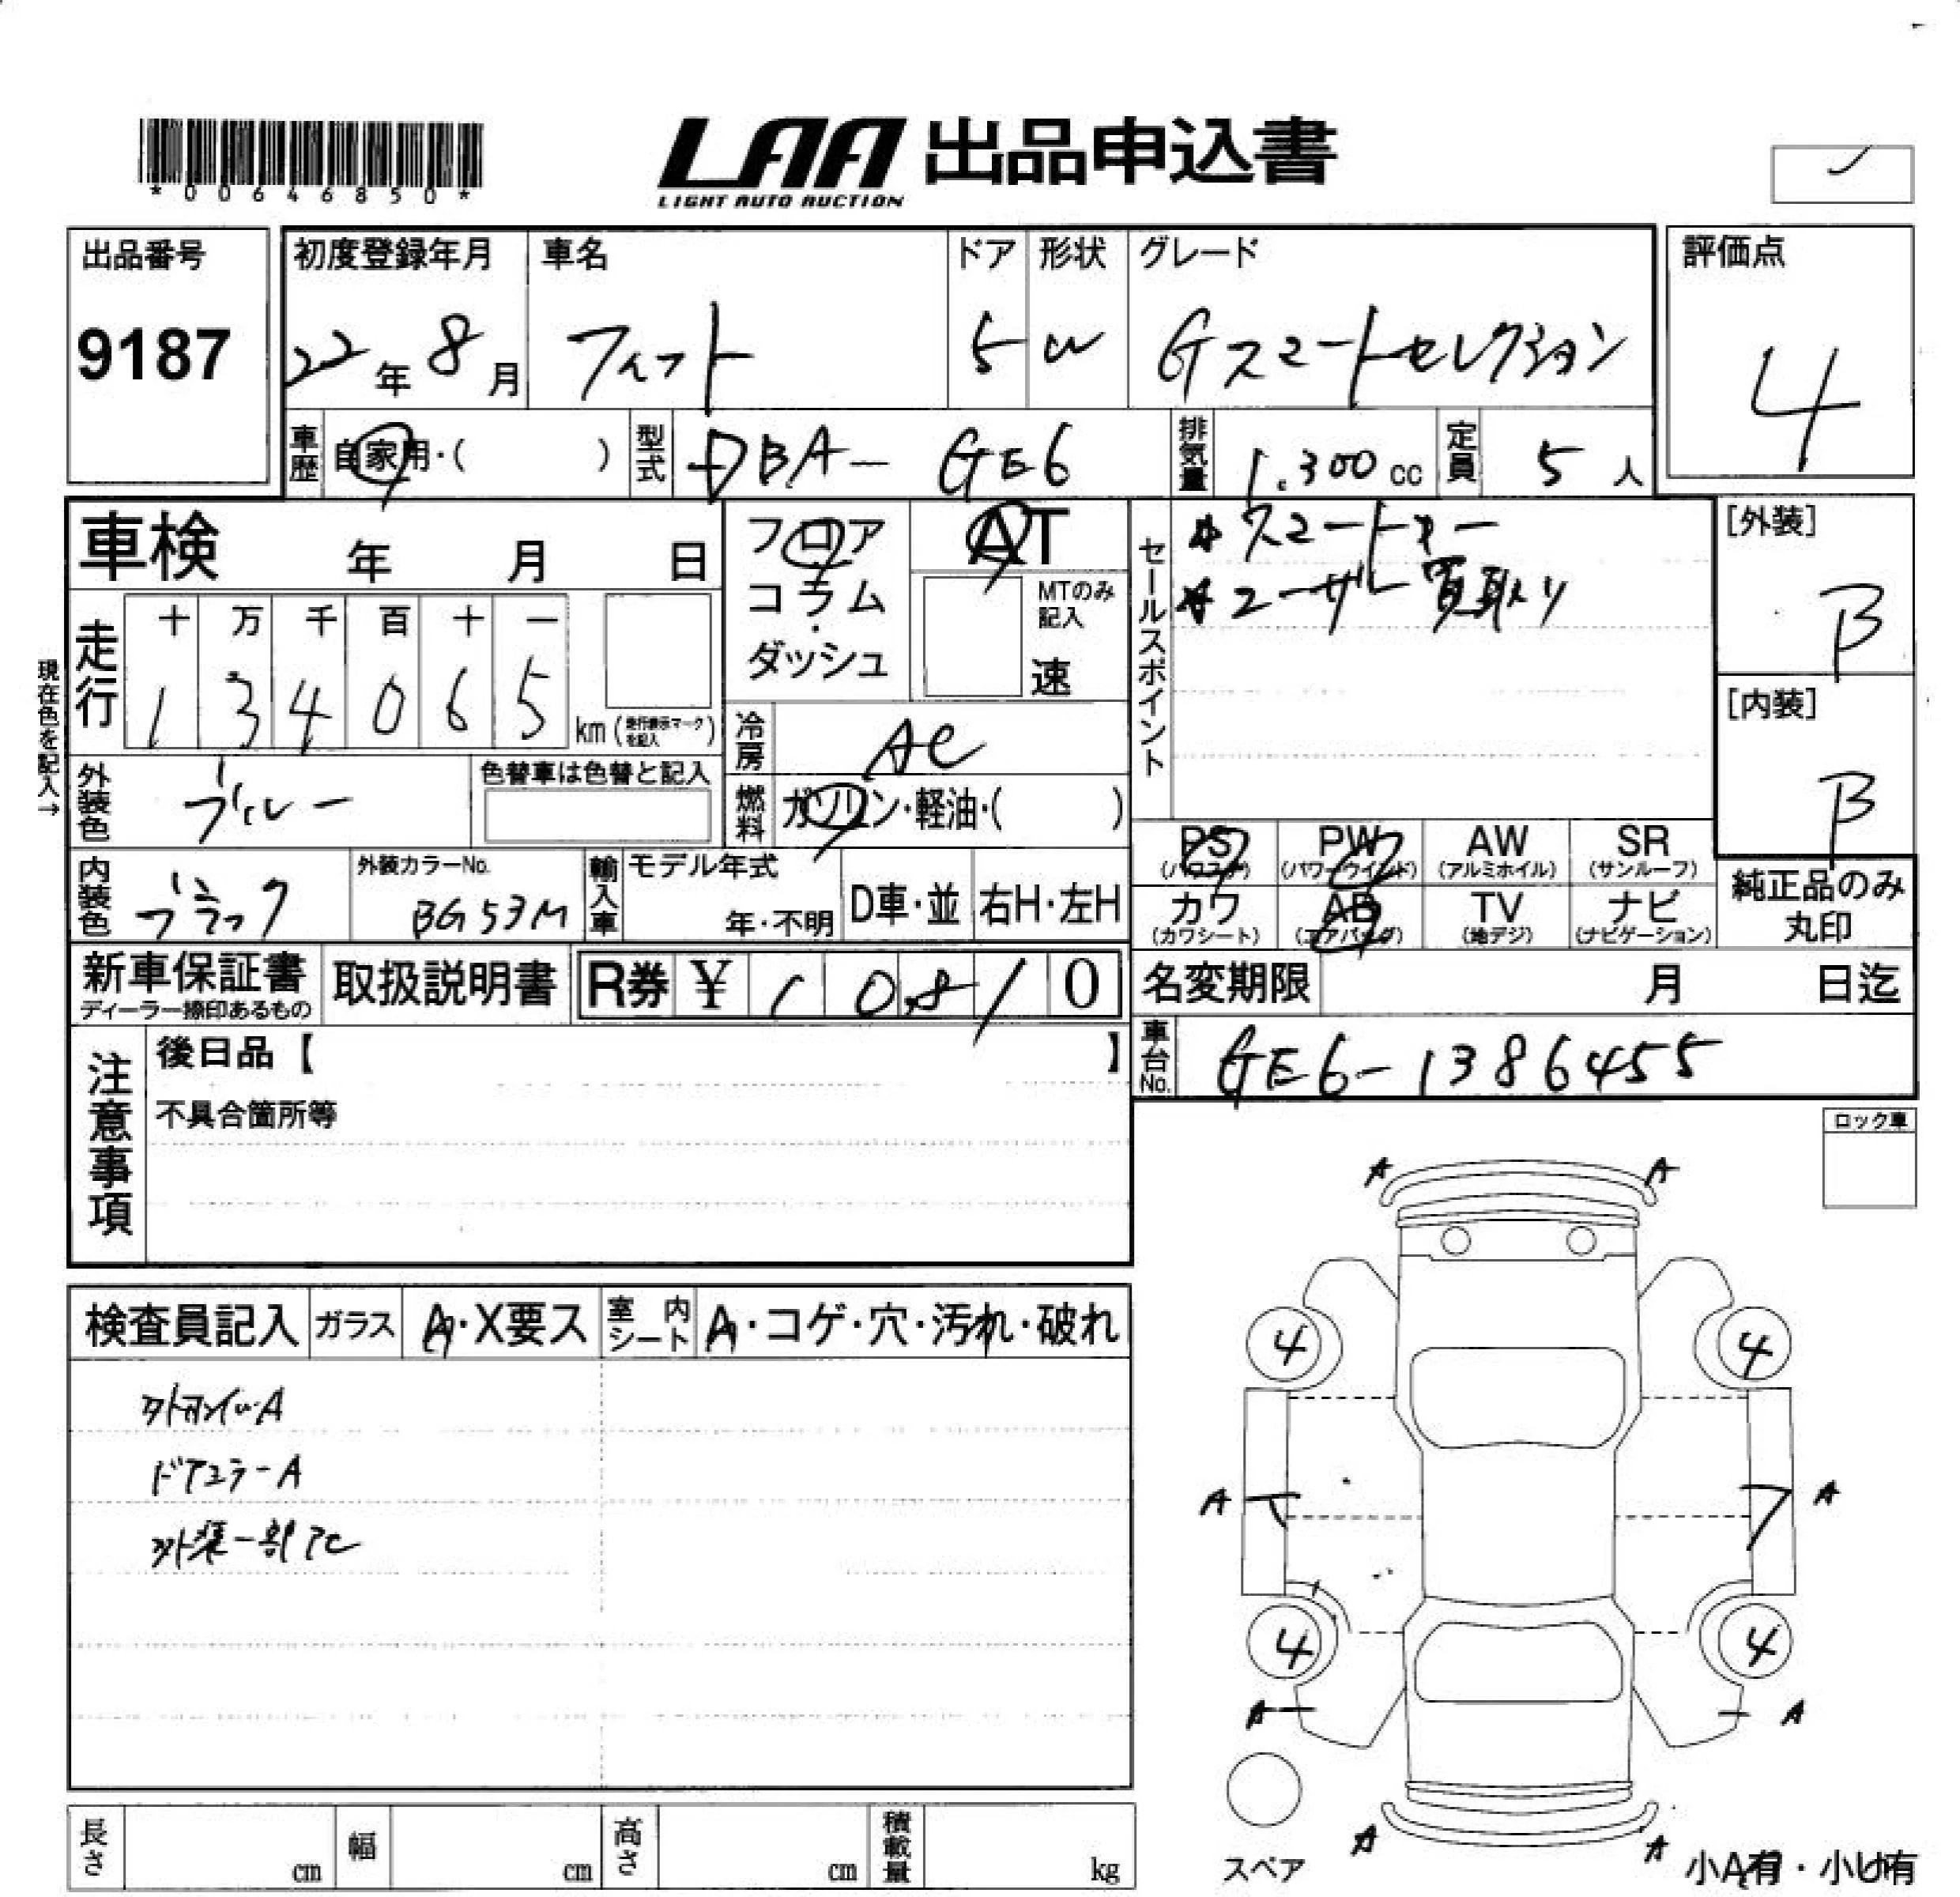 *00646850*
LAA 出品申込書
LIGHT AUTO AUCTION
出品番号
9187
初度登録年月
22年 8月
車名
フィット
ドア
5
形状
W
グレード
Gスマートセレクション
評価点
4
車歴
自家用・( )
型式
DBA- GE6
排気量
1.300 cc
定員
5 人
車検 年 月 日
フロア
コラム
・
ダッシュ
AT
MTのみ
記入
速
セールスポイント
スマートキー
ユーザー買取り
[外装]
B
[内装]
B
現在色を記入→
走行
十 万 千 百 十 一
1 3 4 0 6 5
km (走行表示マークを記入)
冷房
AC
外装色
ブルー
色替車は色替と記入
燃料
ガソリン・軽油・( )
PS
(パワステ)
PW
(パワーウインド)
AW
(アルミホイル)
SR
(サンルーフ)
カワ
(カワシート)
AB
(エアバッグ)
TV
(地デジ)
ナビ
(ナビゲーション)
純正品のみ
丸印
内装色
ブラック
外装カラーNo.
BG53M
輸入車
モデル年式
年・不明
D車・並
右H・左H
新車保証書
ディーラー捺印あるもの
取扱説明書
R券 ¥ 1 0,8 1 0
名変期限 月 日迄
車台No.
GE6-1386455
注意事項
後日品【 】
不具合箇所等
ロック車
検査員記入
ガラス
A・X要ス
室内シート
A・コゲ・穴・汚れ・破れ
ドアミラーA
外装一部AC
A A
4 4
A A
4 4
A A
A A
スペア
小A有・小U有
長さ cm
幅 cm
高さ cm
積載量 kg